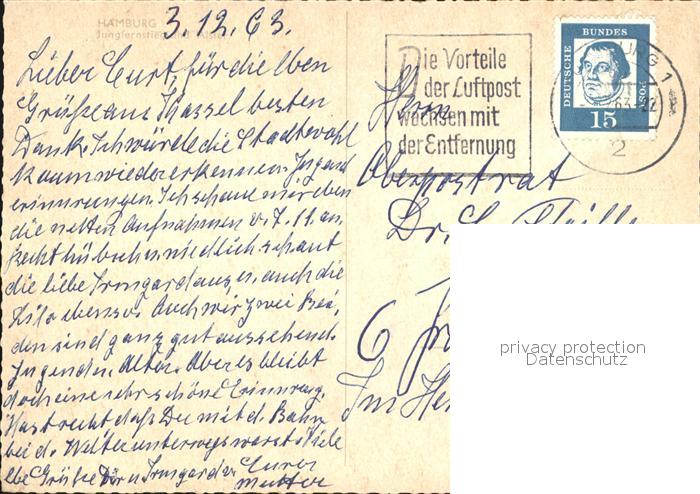 HAMBURG
Jungfernstieg
3.12.63.
Lieber Curt, für die lben
Grüße aus Kassel besten
Dank. Ich würde die Stadt wohl
kaum wiedererkennen. Jugend
erinnerungen. Ich schaue mir eben
die netten Aufnahmen v. 7. 11. an,
recht hübsch u. niedlich schaut
die liebe Irmgard aus, auch die
ebenso. Auch wir zwei Bei,
den sind ganz gut aussehend.
Jugend u. Alter. Aber es bleibt
doch eine sehr schöne Erinnrung.
Hast recht daß Du mit d. Bahn
bei d. Wetter unterwegs warst. Viele
lbe Grüße Dir u. Irmgard Eure
Mutter
Die Vorteile
der Luftpost
wachsen mit
der Entfernung
DEUTSCHE
BUNDES
POST
15
UNG 1
63-22
2
Herrn
Oberpostrat
Dr. C.
6
Im
privacy protection
Datenschutz